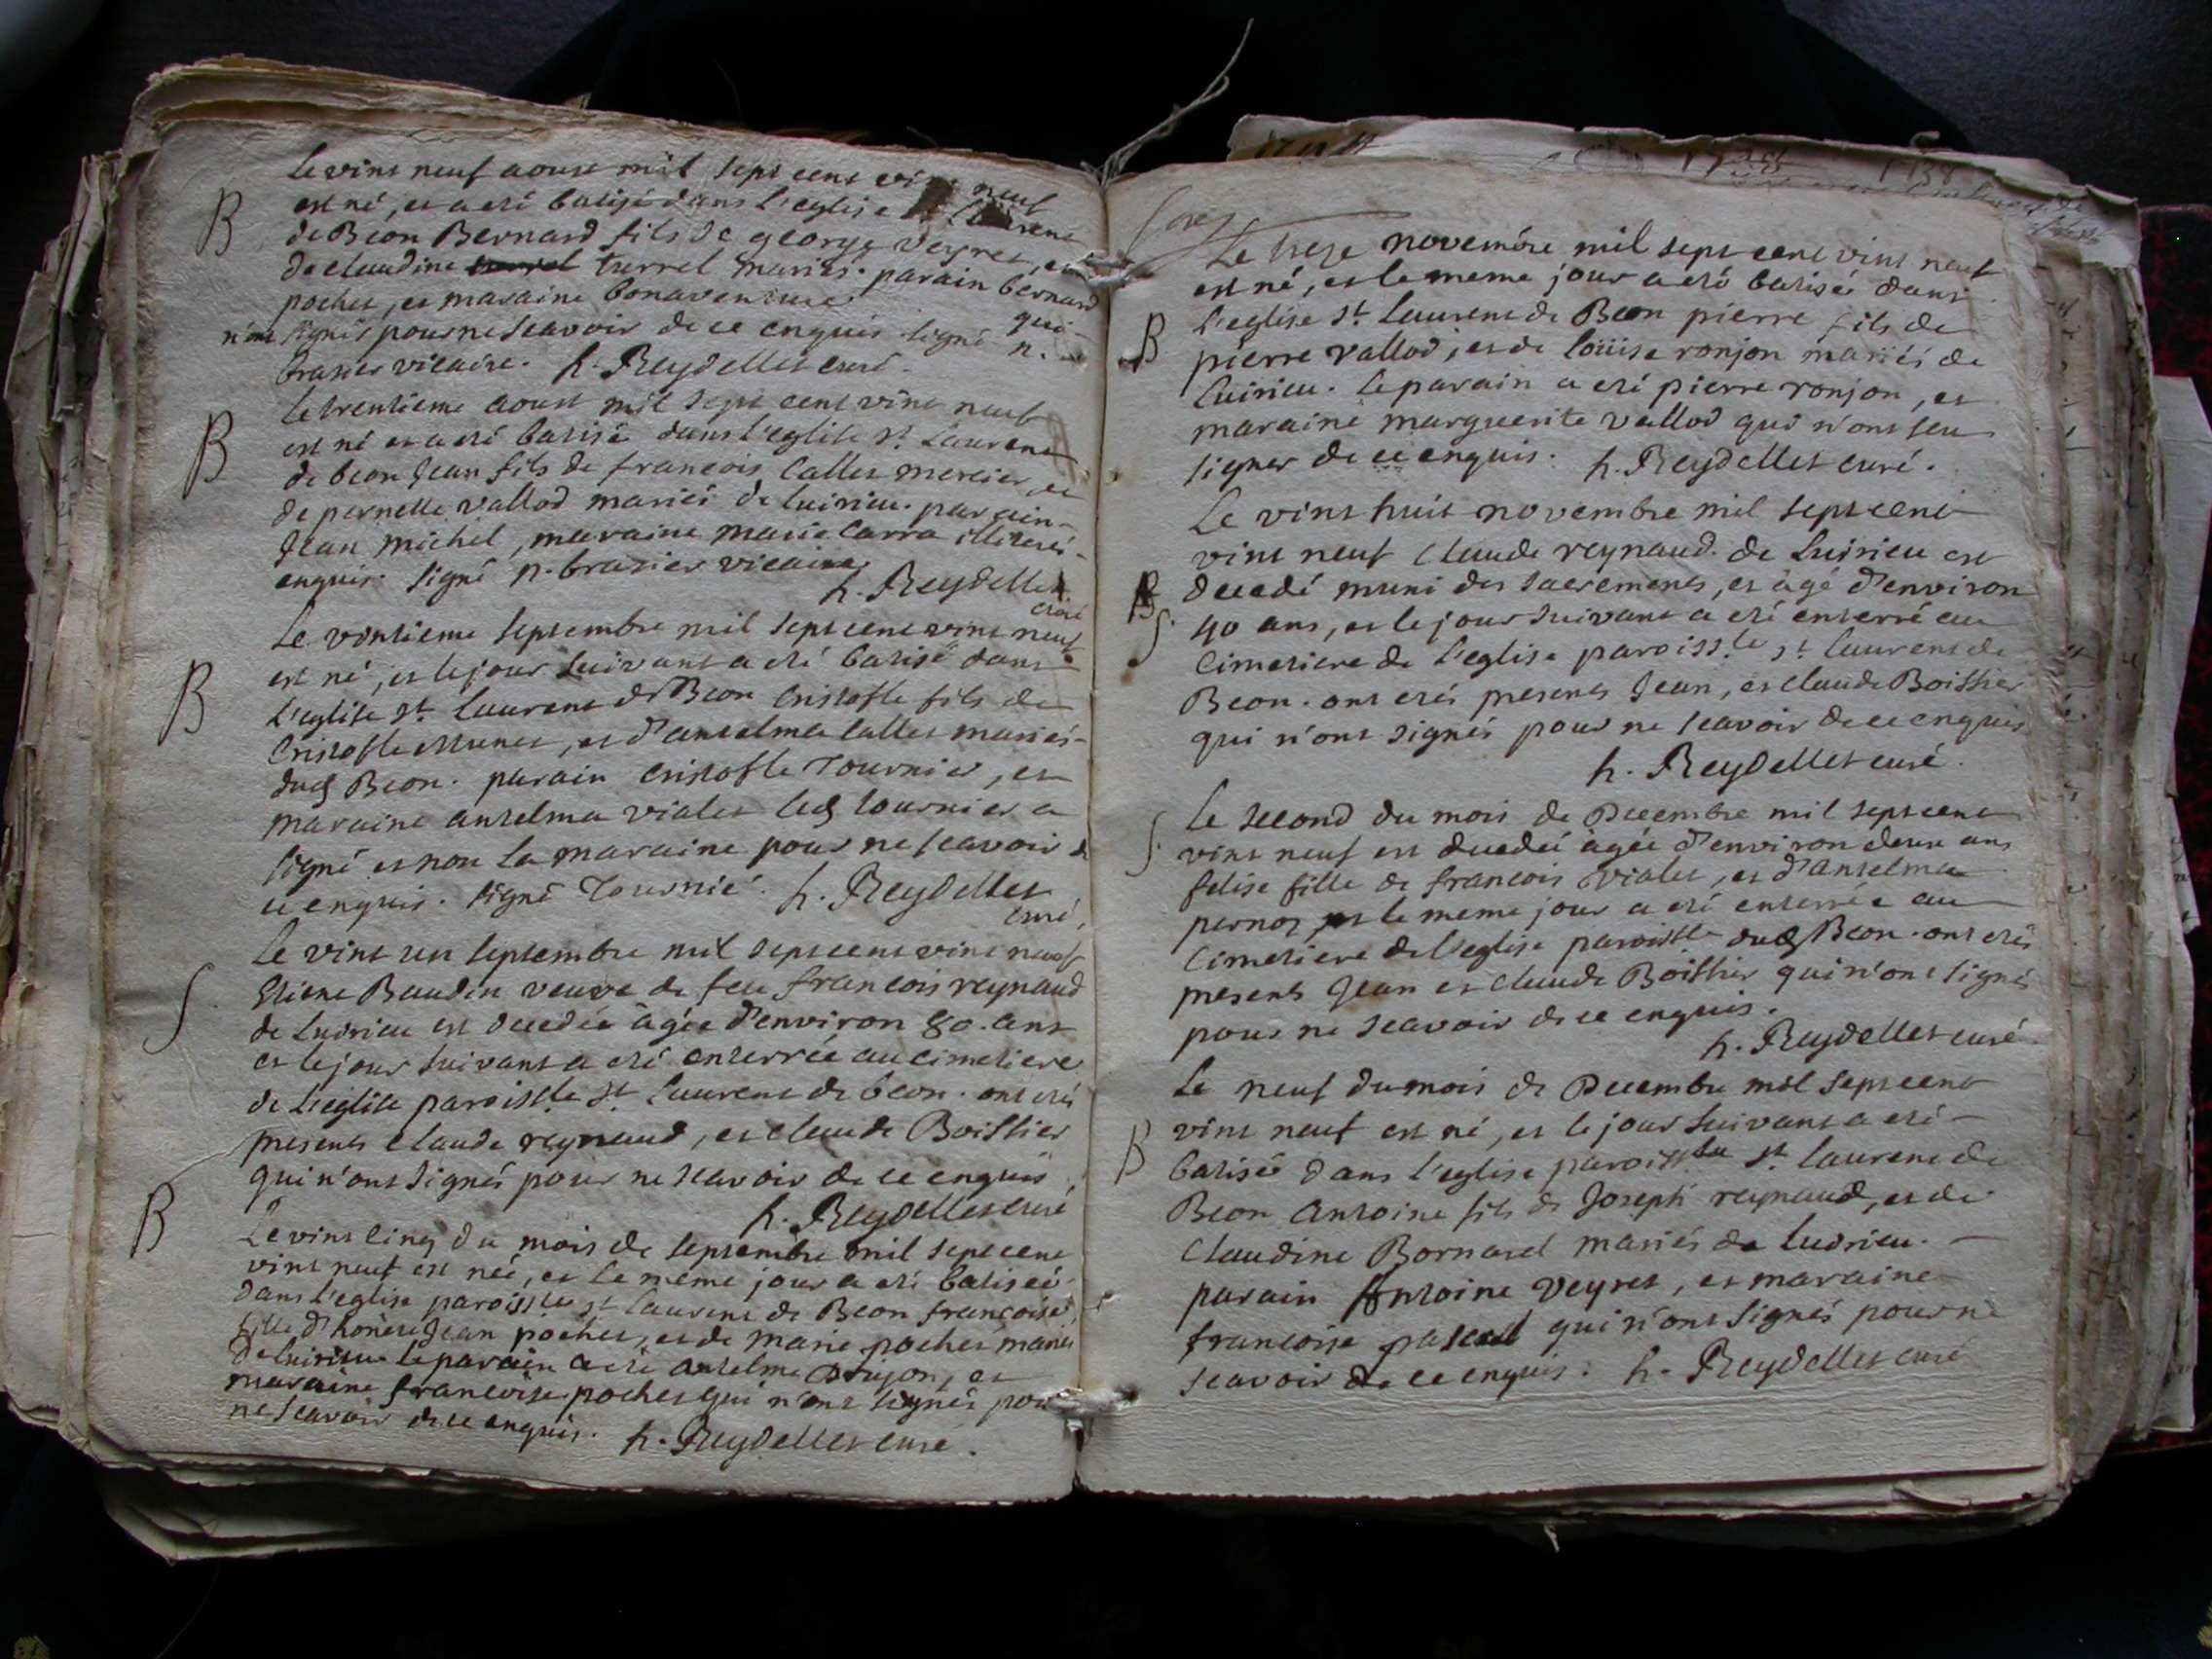 Le vint neuf aoust mil sept cent vint neuf
B est né, et a eté batisé dans l'eglise St Laurent
de Beon Bernard fils de george veyret, et
de claudine turrel mariés. parain bernard
pochet, et maraine bonaventure qui
n'ont signés pour ne scavoir de ce enquis signé n.
brasier vicaire. h. Reydellet curé.
Le trentieme aoust mil sept cent vint neuf
B est né et a eté batisé dans l'eglise St. Laurent
de beon Jean fils de francois Callet mercier et
de pernette vallod mariés de luirieu. parain
Jean michel, maraine marie Carra illiterés
enquis. signé n. brasier vicaire
h. Reydellet
curé
Le vintieme septembre mil sept cent vint neuf
B est né, et le jour suivant a eté batisé dans
l'eglise St. Laurent de Beon Cristofle fils de
Cristofle Munet, et d'antelma Callet mariés
dud Beon. parain Cristofle Tournier, et
maraine antelma vialet led tournier a
signé et non la maraine pour ne scavoir de
ce enquis. signé Tournié. h. Reydellet
curé.
Le vint un septembre mil sept cent vint neuf
S Etiene Baudin veuve de feu francois reynaud
de Luirieu est decedée àgée d'environ 80. ans
et le jour suivant a eté enterrée au cimetiere
de l'eglise paroisslle St Laurent de beon. ont etés
presents claude reynaud, et claude Boissier
qui n'ont signés pour ne scavoir de ce enquis
h. Reydellet curé
B Le vint cinq du mois de septembre mil sept cent
vint neuf est née, et le meme jour a eté batiseé
dans l'eglise paroisslle St laurent de Beon francoise
fille d'honete Jean pochet, et de marie pochet mariés
de luirieu. le parain a eté antelme, et
maraine francoise pochet qui n'ont signés pour
ne scavoir de ce enquis. h. Reydellet curé.
Le treze novembre mil sept cent vint neuf
est né, et le meme jour a eté batisé dans
l'eglise St. Laurent de Beon pierre fils de
B pierre vallod, et de loüise ronjon mariés de
luirieu. le parain a eté pierre ronjon, et
maraine marguerite vallod qui n'ont sceu
signer de ce enquis. h. Reydellet curé.
Le vint huit novembre mil sept cent
vint neuf claude reynaud de luirieu est
decedé muni des sacrements, et àgé d'environ
S. 40 ans, et le jour suivant a eté enterré au
cimetiere de l'eglise paroiss.le St laurent de
Beon. ont etés presents Jean, et claude Boissier
qui n'ont signés pour ne scavoir de ce enquis
h. Reydellet curé.
Le second du mois de Decembre mil sept cent
S. vint neuf est decedeé àgée d'environ deux ans
felise fille de francois vialet, et d'Antelma
pernoz et le meme jour a eté enterrée au
cimetiere de l'eglise paroisslle dud Beon. ont etés
presents Jean et claude Boissier qui n'ont signés
pour ne scavoir de ce enquis.
h. Reydellet curé
Le neuf du mois de Decembre mil sept cent
B vint neuf est né, et le jour suivant a eté
batisé dans l'eglise paroisslle St. laurent de
Beon Antoine fils de Joseph reynaud, et de
Claudine Bornarel mariés de luirieu.
parain Antoine veyret, et maraine
francoise pascal qui n'ont signés pour ne
scavoir de ce enquis. h. Reydellet curé